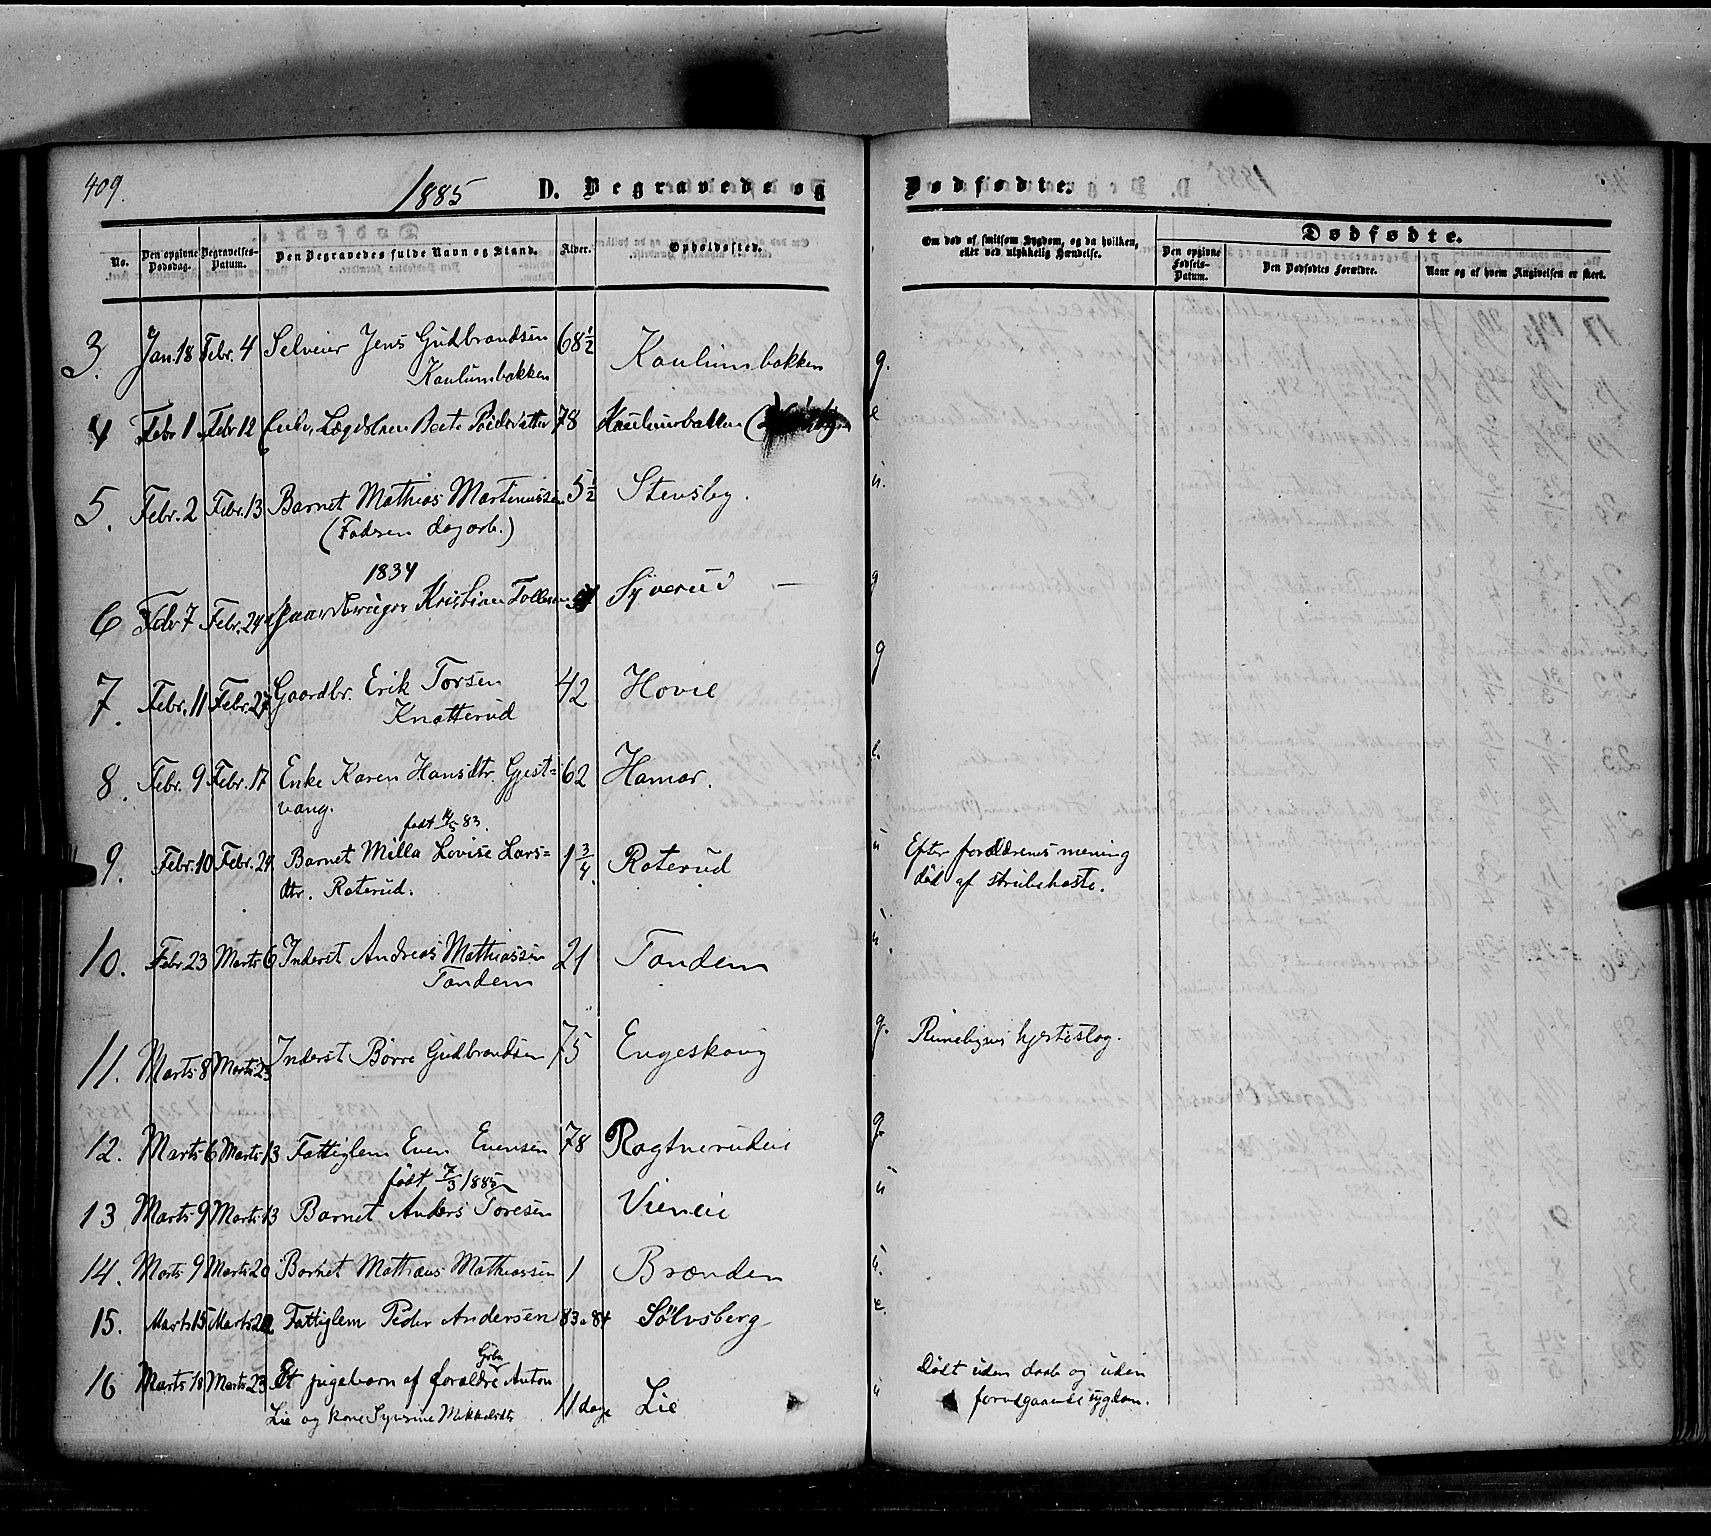 409.
1885 D. Begravede og Dødfødte.
No. Den opgivne Dødsdag. Begravelses-Datum. Den Begravedes fulde Navn og Stand. Alder. Opholdssted. Om død af smitsom Sygdom, og da hvilken, eller ved ulykkelig Hændelse. Dødfødte.
Den opgivne Fødsels-Datum. Den Dødfødtes Forældre. Naar og af hvem Angivelsen er skeet.
3. Jan. 18 Febr. 4 Selveier Jens Gudbrandsen 68 1/2 Kaulumbakken g.
Kaulumbakken
4 Febr 1 Febr 12 Enke, Lægdslem Berte Pedersdatter 78 Kaulumbakken e
5. Febr. 2 Febr. 13 Barnet Mathias Martinussen 5 1/2 Stensby. u.
(Faderen dagarb.)
1834
6 Febr 7 Febr. 24 Gaardbruger Kristian Tollersen Syverud — g
7. Febr. 11 Febr. 27 Gaardbr. Erik Torsen 42 Hovie g
Knatterud
8. Febr. 9 Febr. 17 Enke Karen Hansdtr. Gjest= 62 Hamar. e.
vang.
født 11/5 83.
9. Febr. 10 Febr. 24 Barnet Milla Lovise Lars= 1 3/4. Roterud u Efter forældrenes mening
dtr. Roterud. død af strubehoste.
10. Febr. 23 Marts 6 Inderst Andreas Mathiassen 21 Tandem u.
Tandem
11. Marts 8 Marts 23 Inderst Børre Gudbrandsen 75 Engeskoug g. Rimeligvis hjerteslag.
12. Marts 6 Marts 13 Fattiglem Even Evensen 78 Ragtnerudeie g.
født 7/3 1885
13 Marts 9 Marts 13 Barnet Anders Toresen Vieneie u
14. Marts 9 Marts 20 Barnet Mathæus Mathiassen 1 Brænden u.
15. Marts 15 Marts 22 Fattiglem Peder Andersen 83 a 84 Sølvsberg e.
Gbr.
16 Marts 18 Marts 23 Et pigebarn af forældre Anton 11 dage Lie u Dødt uden daab og uden
Lie og kone Syverine Mikkelsdt. forudgaaende sygdom.